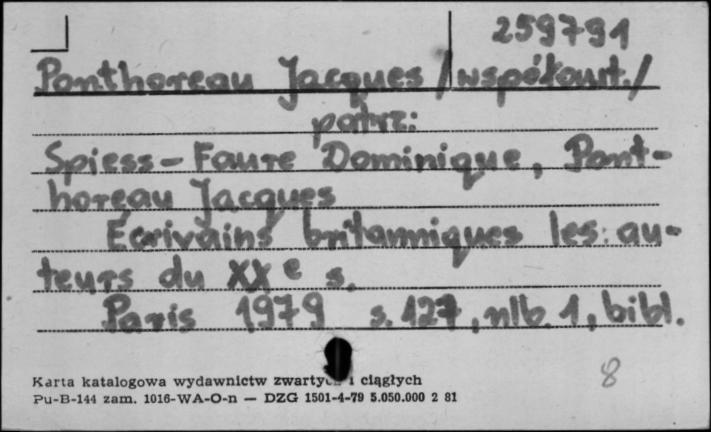 259791
Ponthoreau Jacques /współaut./
patrz:
Spiess-Faure Dominique, Pont-
horeau Jacques
Écrivains britanniques les: au-
teurs du XXe s.
Paris 1979 s. 127, nlb. 1, bibl.
8
Karta katalogowa wydawnictw i ciągłych
Pu-B-144 zam. 1016-WA-O-n — DZG 1501-4-79 5.050.000 2 81